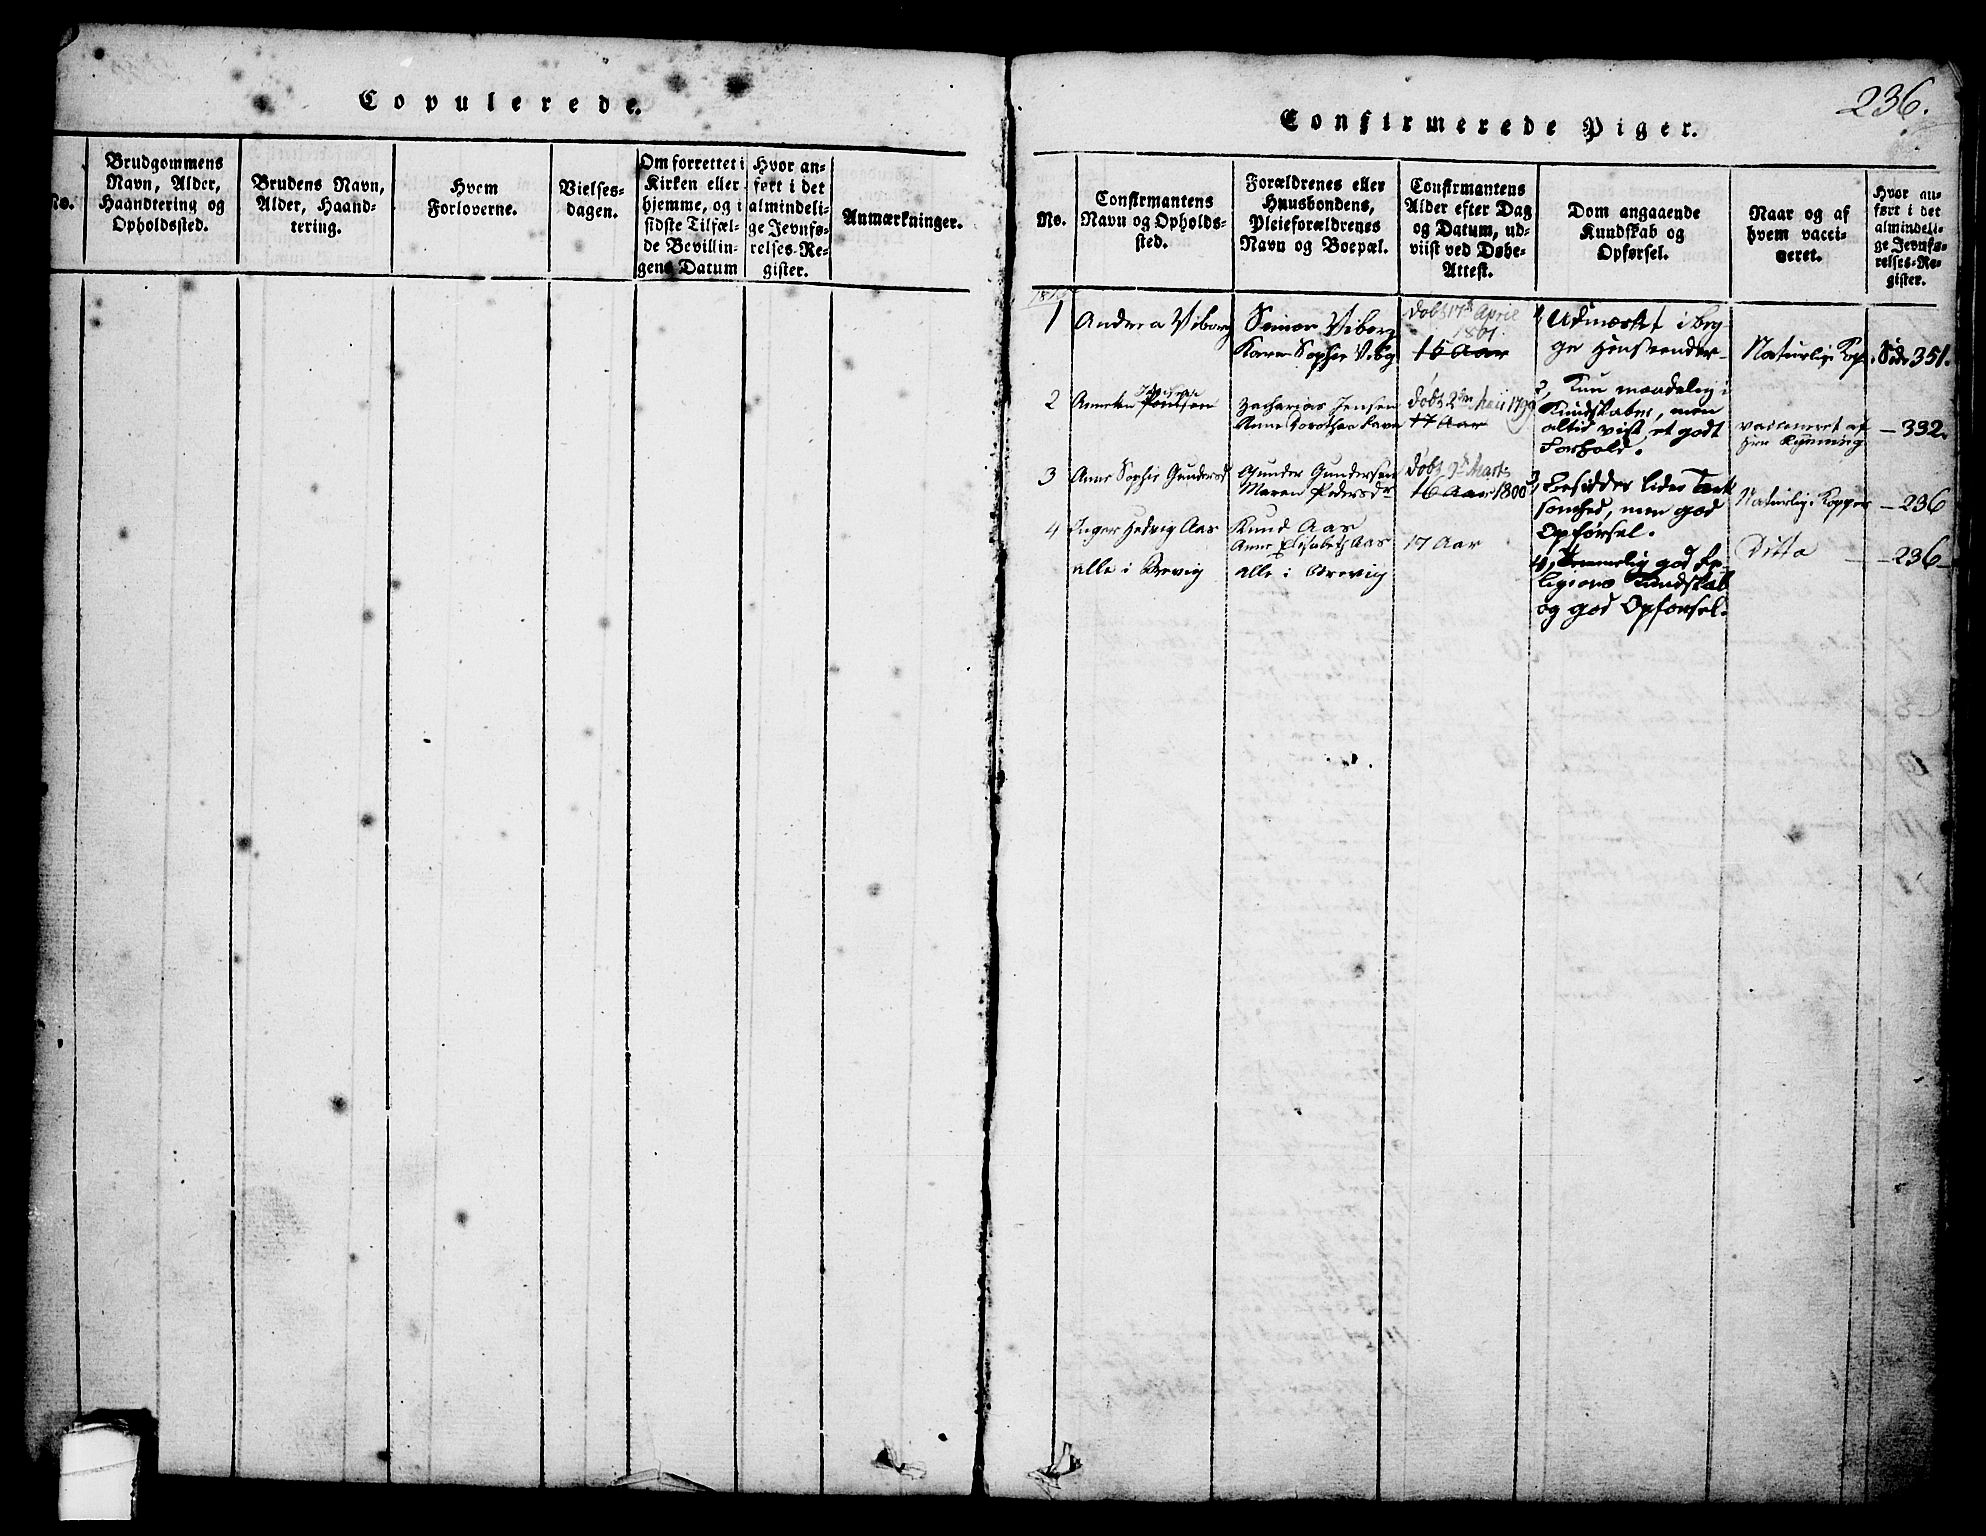 Copulerede.
No.
Brudgommens
Navn, Alder,
Haandtering og
Opholdssted.
Brudens Navn,
Alder, Haand-
tering.
Hvem
Forloverne.
Vielses-
dagen.
Om forrettet i
Kirken eller
hjemme, og i
sidste Tilfæl-
de Bevillin-
gens Datum
Hvor an-
ført i det
almindeli-
ge Jevnfø-
relses-Re-
gister.
Anmærkninger.
236.
Confirmerede Piger.
No.
Confirmantens
Navn og Opholds-
sted.
Forældrenes eller
Huusbondens,
Pleieforældrenes
Navn og Boepæl.
Confirmantens
Alder efter Dag
og Datum, ud-
viist ved Døbe-
Attest.
Dom angaaende
Kundskab og
Opførsel.
Naar og af
hvem vacci-
neret.
Hvor an-
ført i det
almindeli-
ge Jevnfø-
relses-Re-
gister.
1 Andrea Viborg
Simon Viborg
Karen Sophie Vibg
døbt 17de April
1801.
15 Aar
Udmærket i beg-
ge Henseender
Naturlige Kop.
Side 351.
2 Poulsen
Zacharias Jensen
Anne Dorothea
døbt 2den Maii 1799
17 Aar
Kun maadelig i
Kundskaber, men
altid viist et godt
Forhold.
vaccineret af
332.
3 Anne Sophie Gundersd
Gunder Gundersen
Maren Pedersdr
døbt 9de Marts
16 Aar 1800
Besidder liden Tænk
somhed, men god
Opførsel.
Naturlige Kopper
236
4 Inger Hedvig Aas
Knud Aas
Anne Elisabeth Aas
17 Aar
4, Temmelig god Re-
ligions Kundskab
og god Opførsel.
Ditto
236
alle i Brevig
alle i Brevig